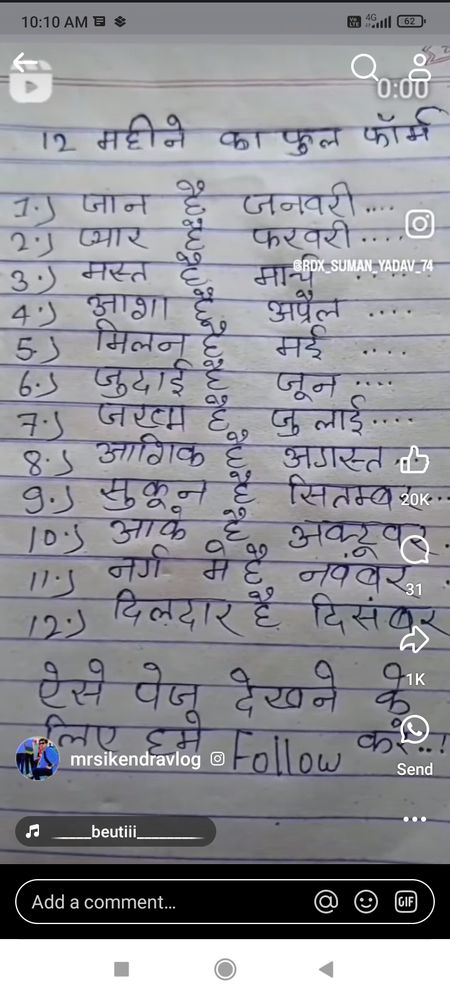 10:10 AM
4G
62
0:00
12 महीने का फुल फॉर्म
1.) जान है जनवरी ....
2.) प्यार है फरवरी ....
@RDX_SUMAN_YADAV_74
3.) मस्त है मार्च ....
4.) आशा है अप्रैल ....
5.) मिलन है मई ....
6.) जुदाई है जून ....
7.) जख्म है जुलाई ....
8.) आशिक है अगस्त ..
9.) सुकून है सितम्बर ...
20K
10.) आके है अक्टूबर .
11.) नर्ग मे है नवंबर .
31
12.) दिलदार है दिसंबर
1K
ऐसे पेज देखने के
लिए हमे Follow करे..!
mrsikendravlog
Send
_____beutiii_________
Add a comment...
GIF